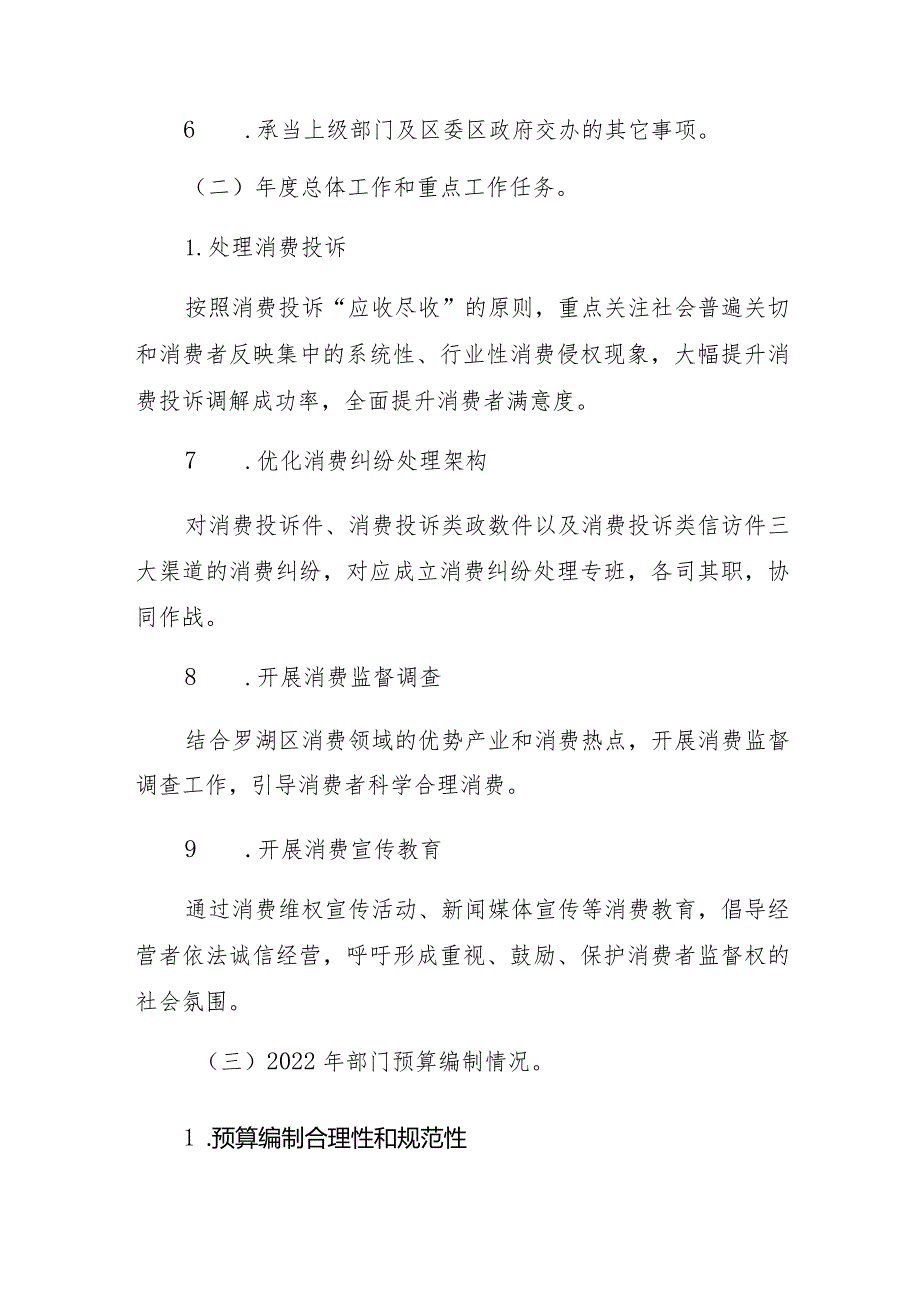 6 .承当上级部门及区委区政府交办的其它事项。
（二）年度总体工作和重点工作任务。
1.处理消费投诉
按照消费投诉“应收尽收”的原则，重点关注社会普遍关切
和消费者反映集中的系统性、行业性消费侵权现象，大幅提升消
费投诉调解成功率，全面提升消费者满意度。
7 .优化消费纠纷处理架构
对消费投诉件、消费投诉类政数件以及消费投诉类信访件三
大渠道的消费纠纷，对应成立消费纠纷处理专班，各司其职，协
同作战。
8 .开展消费监督调查
结合罗湖区消费领域的优势产业和消费热点，开展消费监督
调查工作，引导消费者科学合理消费。
9 .开展消费宣传教育
通过消费维权宣传活动、新闻媒体宣传等消费教育，倡导经
营者依法诚信经营，呼吁形成重视、鼓励、保护消费者监督权的
社会氛围。
（三）2022 年部门预算编制情况。
1 .预算编制合理性和规范性